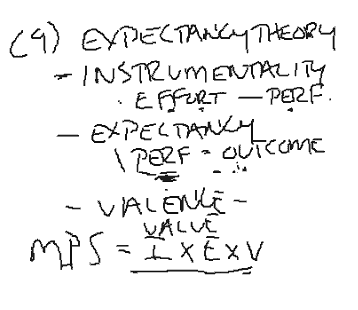 (9) EXPECTANCY THEORY
- INSTRUMENTALITY
· EFFORT - PERF.
- EXPECTANCY
\ PERF - OUTCOME
- VALENCE -
VALUE
MPS = I X E X V